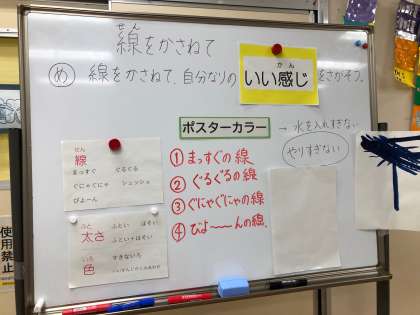 線をかさねて
せん
め 線をかさねて、自分なりの いい感じ をさがそう。
かん
ポスターカラー
→ 水を入れすぎない
やりすぎない
① まっすぐの線
② ぐるぐるの線
③ ぐにゃぐにゃの線
④ びよ〜〜んの線
せん
線
まっすぐ ぐるぐる
ぐにゃぐにゃ シュッシュ
びよーん
ふと
太さ ふとい ほそい
ふとい+ほそい
いろ
色 すきないろ
使用禁止